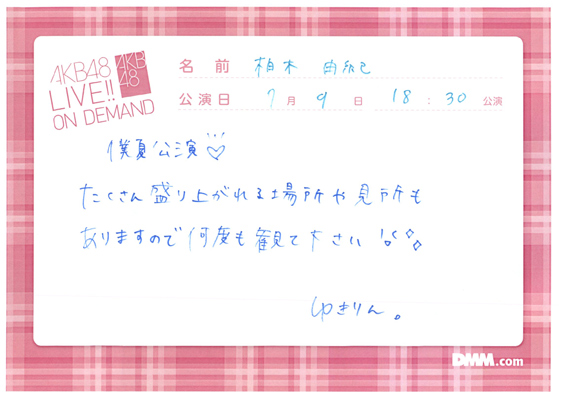 AKB48
LIVE!!
ON DEMAND
AKB
48
名前 柏木 由紀
公演日 7月9日 18:30 公演
僕夏公演♡
たくさん盛り上がれる場所や見所も
ありますので何度も観て下さい!!
ゆきりん。
DMM.com